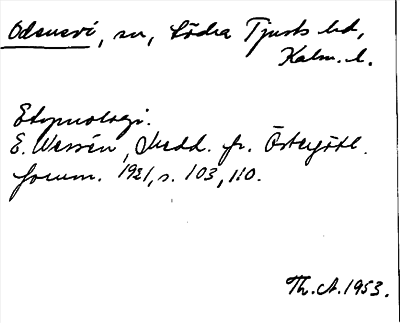 Odensvi, sn, Södra Tjusts hd,
Kalm. l.
Etymologi.
E. Wessén, Medd. fr. Östergötl.
fornm. 1921, s. 103, 110.
Th. A. 1953.